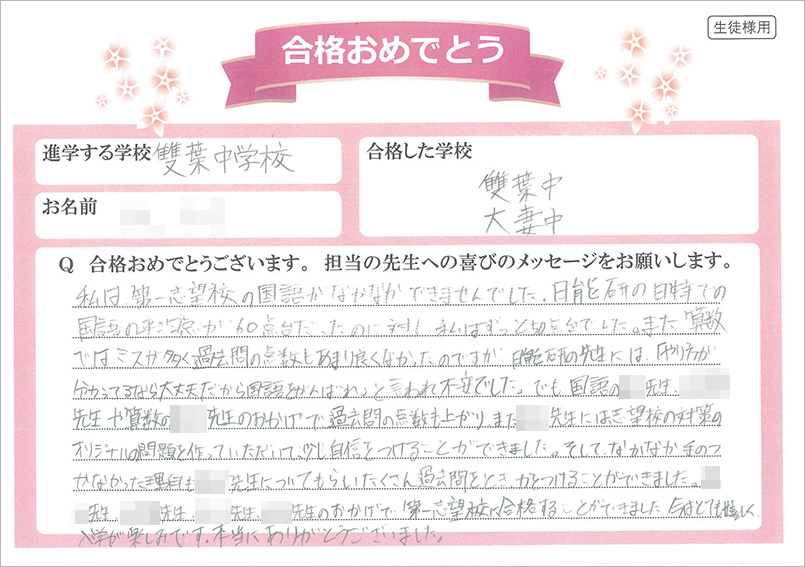 生徒様用
合格おめでとう
進学する学校 雙葉中学校
合格した学校
雙葉中
大妻中
お名前
Q 合格おめでとうございます。 担当の先生への喜びのメッセージをお願いします。
私は、第一志望校の国語がなかなかできませんでした。日能研の日特での
国語の平均点が60点台だったのに対し、私はずっと50点台でした。また、算数
ではミスが多く過去問の点数もあまり良くなかったのですが、日能研の先生には、「やり方が
分かってるなら大丈夫だから国語をがんばれ。」と言われ不安でした。でも国語の 先生、
先生や算数の 先生のおかげで過去問の点数も上がり、また 先生には志望校の対策の
オリジナルの問題を作っていただいて、少し自信をつけることができました。そして、なかなか手のつ
かなかった理科も 先生についてもらいたくさん過去問をとき、力をつけることができました。
先生、 先生、 先生、 先生のおかげで、第一志望校に合格することができました。今はとても嬉しく、
入学が楽しみです。本当にありがとうございました。